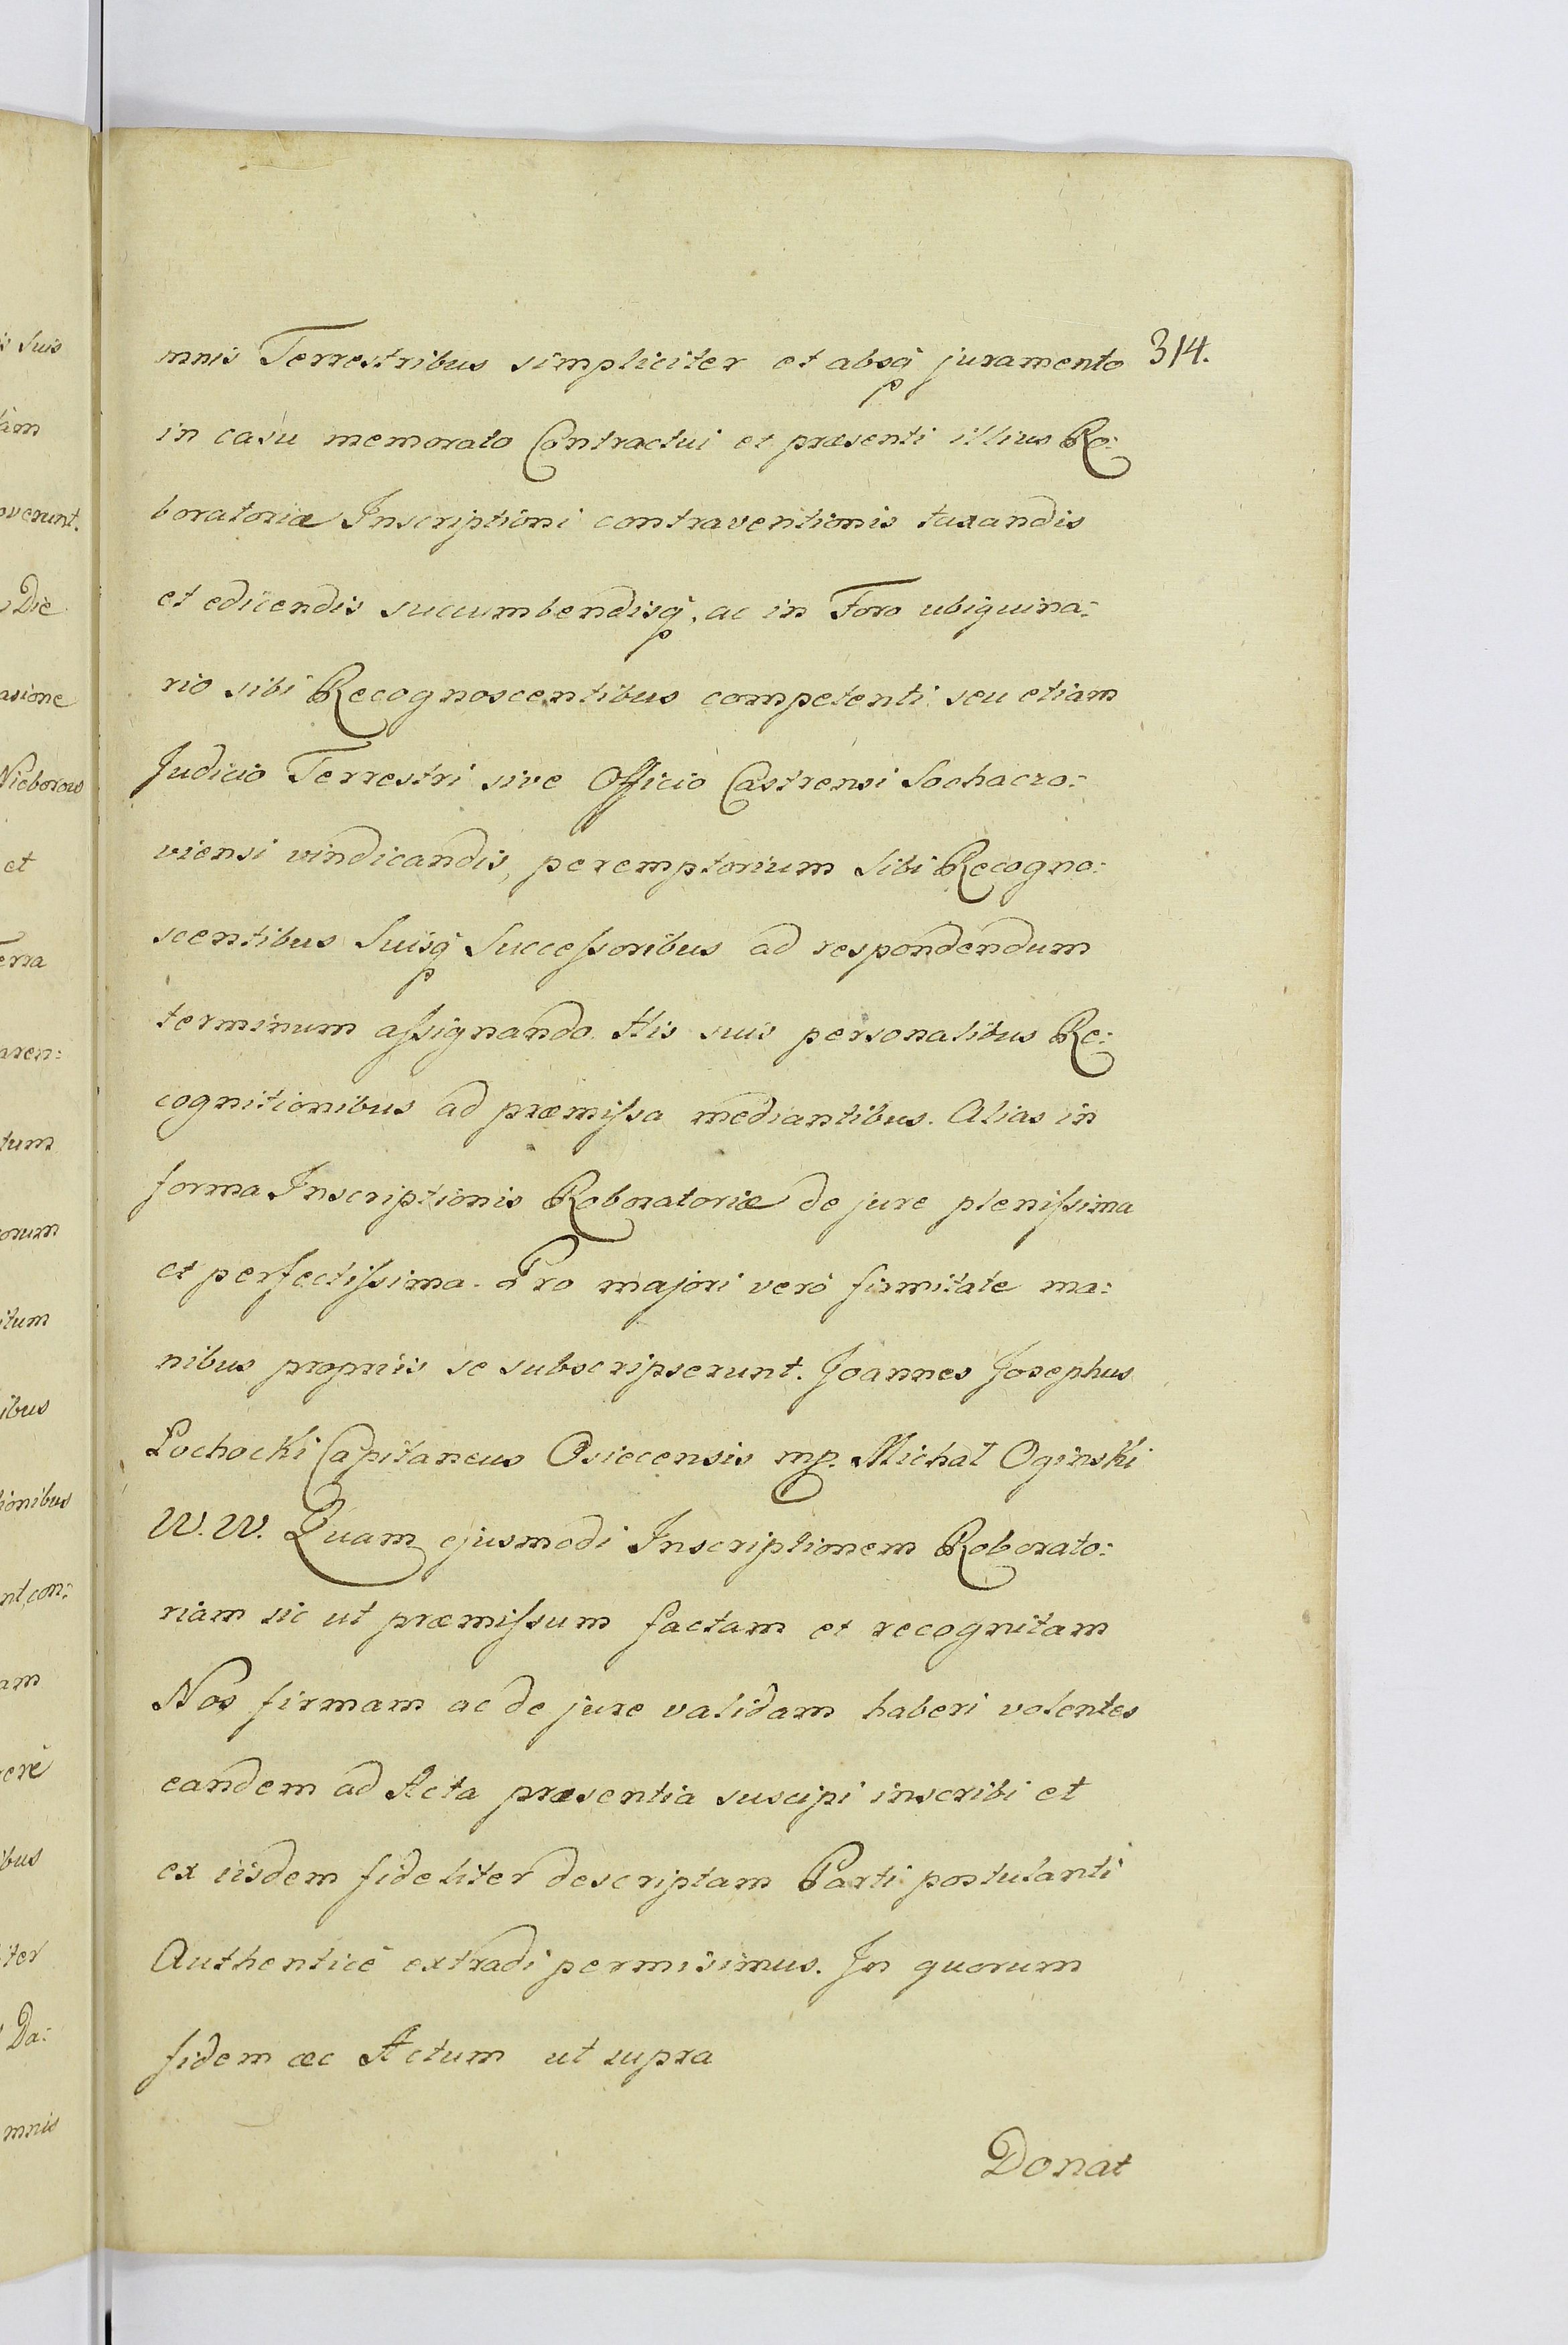 mnis Terrestribus simpliciter et absq̃ juramento 314.
in casu memorato Contractui et præsenti illius Ro:
boratoriæ Inscriptioni contraventionis taxandis
et edicendis succumbendisq̃, ac in Foro ubiquina:
rio sibi Recognoscentibus competenti seu etiam
Judicio Terrestri sive Officio Castrensi Sochaczo:
viensi vindicandis, peremptorium sibi Recogno:
scentibus Suisq̃ Successoribus ad respondendum
terminum assignando. His suis personalibus Re:
cognitionibus ad præmissa mediantibus. Alias in
forma Inscriptionis Roboratoriæ de jure plenissima
et perfectissima. Pro majori verò firmitate ma:
nibus propriis se subscripserunt. Joannes Josephus
Łochocki Capitaneus Osiecensis mp. Michał Oginski
W. W. Quam ejusmodi Inscriptionem Roborato:
riam sic ut præmissum factam et recognitam
Nos firmam ac de jure validam haberi volentes
eandem ad Acta præsentia suscipi inscribi et
ex iisdem fideliter descriptam Parti postulanti
Authenticè extradi permisimus. In quorum
fidem æc Actum ut supra
Donat
is Suis
overunt.
Die
asione
Nieborow
et
erra
aren:
tum
orum
itum
ibus
tionibus
nt, con:
am
erè
ibus
iter
Da:
mnis